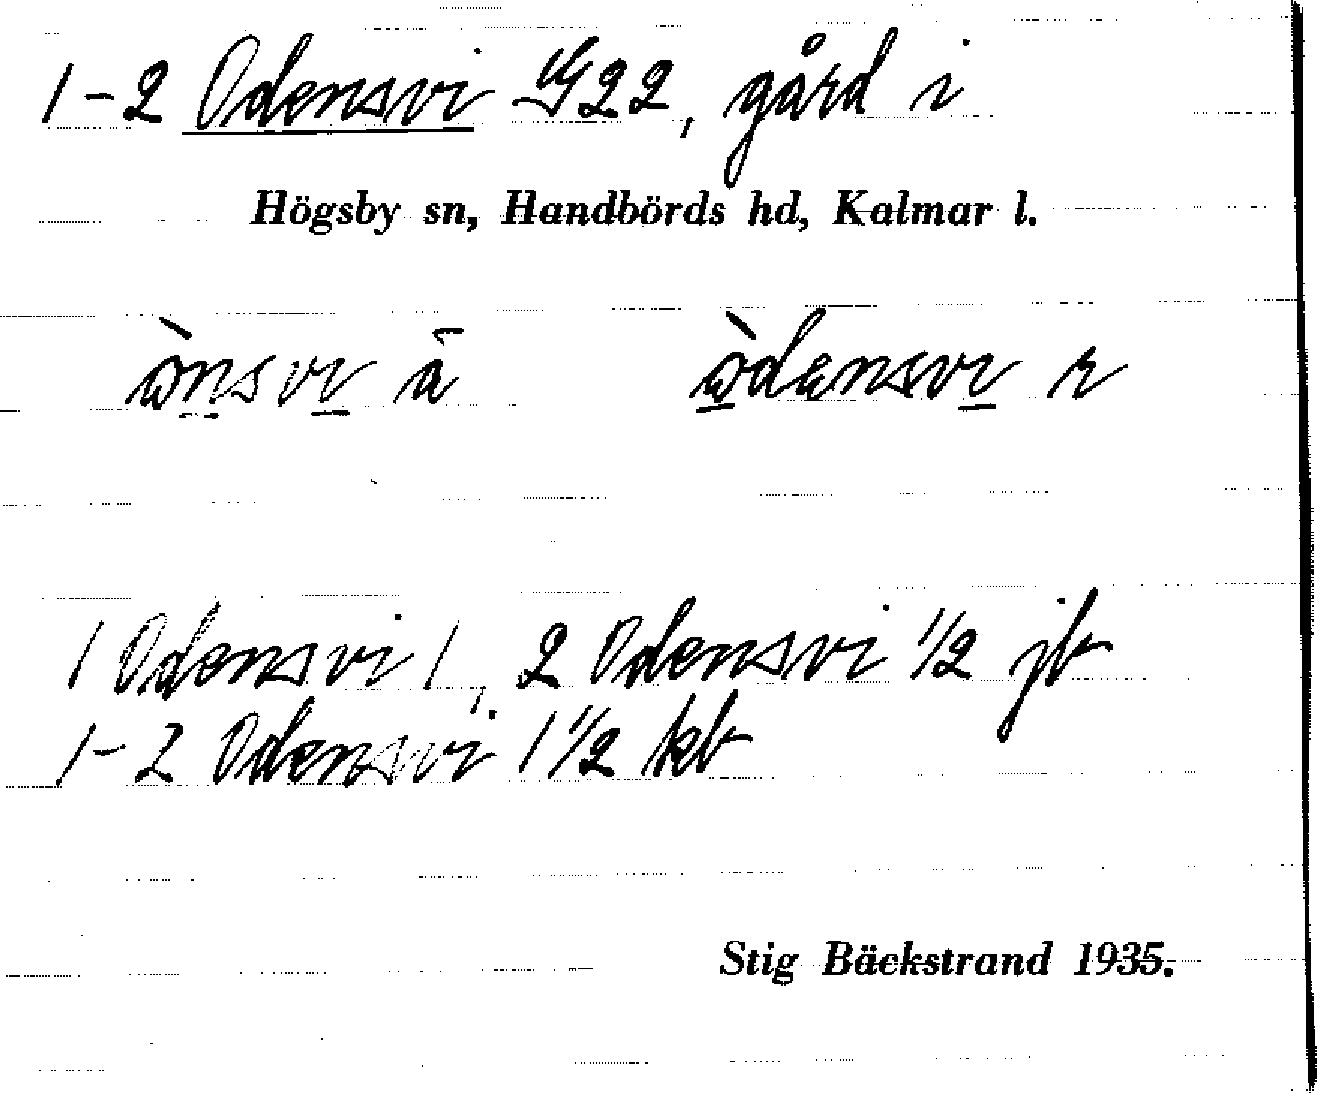 1-2 Odensvi 22, gård i
Högsby sn, Handbörds hd, Kalmar l.
ònsvi ā òdensvi r
1 Odensvi 1, 2 Odensvi 1/2 jb
1-2 Odensvi 1 1/2 kb
Stig Bäckstrand 1935.